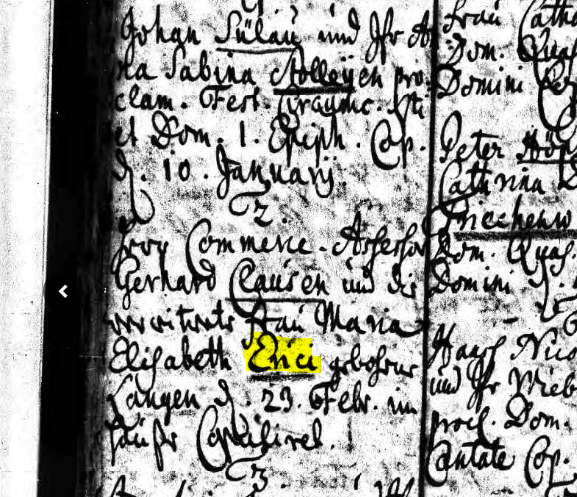 Johan Sülau und Jfr A
na Sabina Stolleÿen pro
clam. Fest. Circumc. Xti
et Dom. 1. Epiph. Cop.
d. 10. Januarÿ
2.
Herr Commerce-Assessor
Gerhard Clausen und die
verwitwete Frau Maria
Elisabeth Erici gebohrne
Langen d. 23. Febr. im
Hause Copulirel.
3.
Frau Catha
Dom. Quas
Domini
Peter
Cathrina
Friechenw
Dom. Quas.
Domini d.
Hans Nic
und Jfr Wieb
procl. Dom.
Cantate Cop.